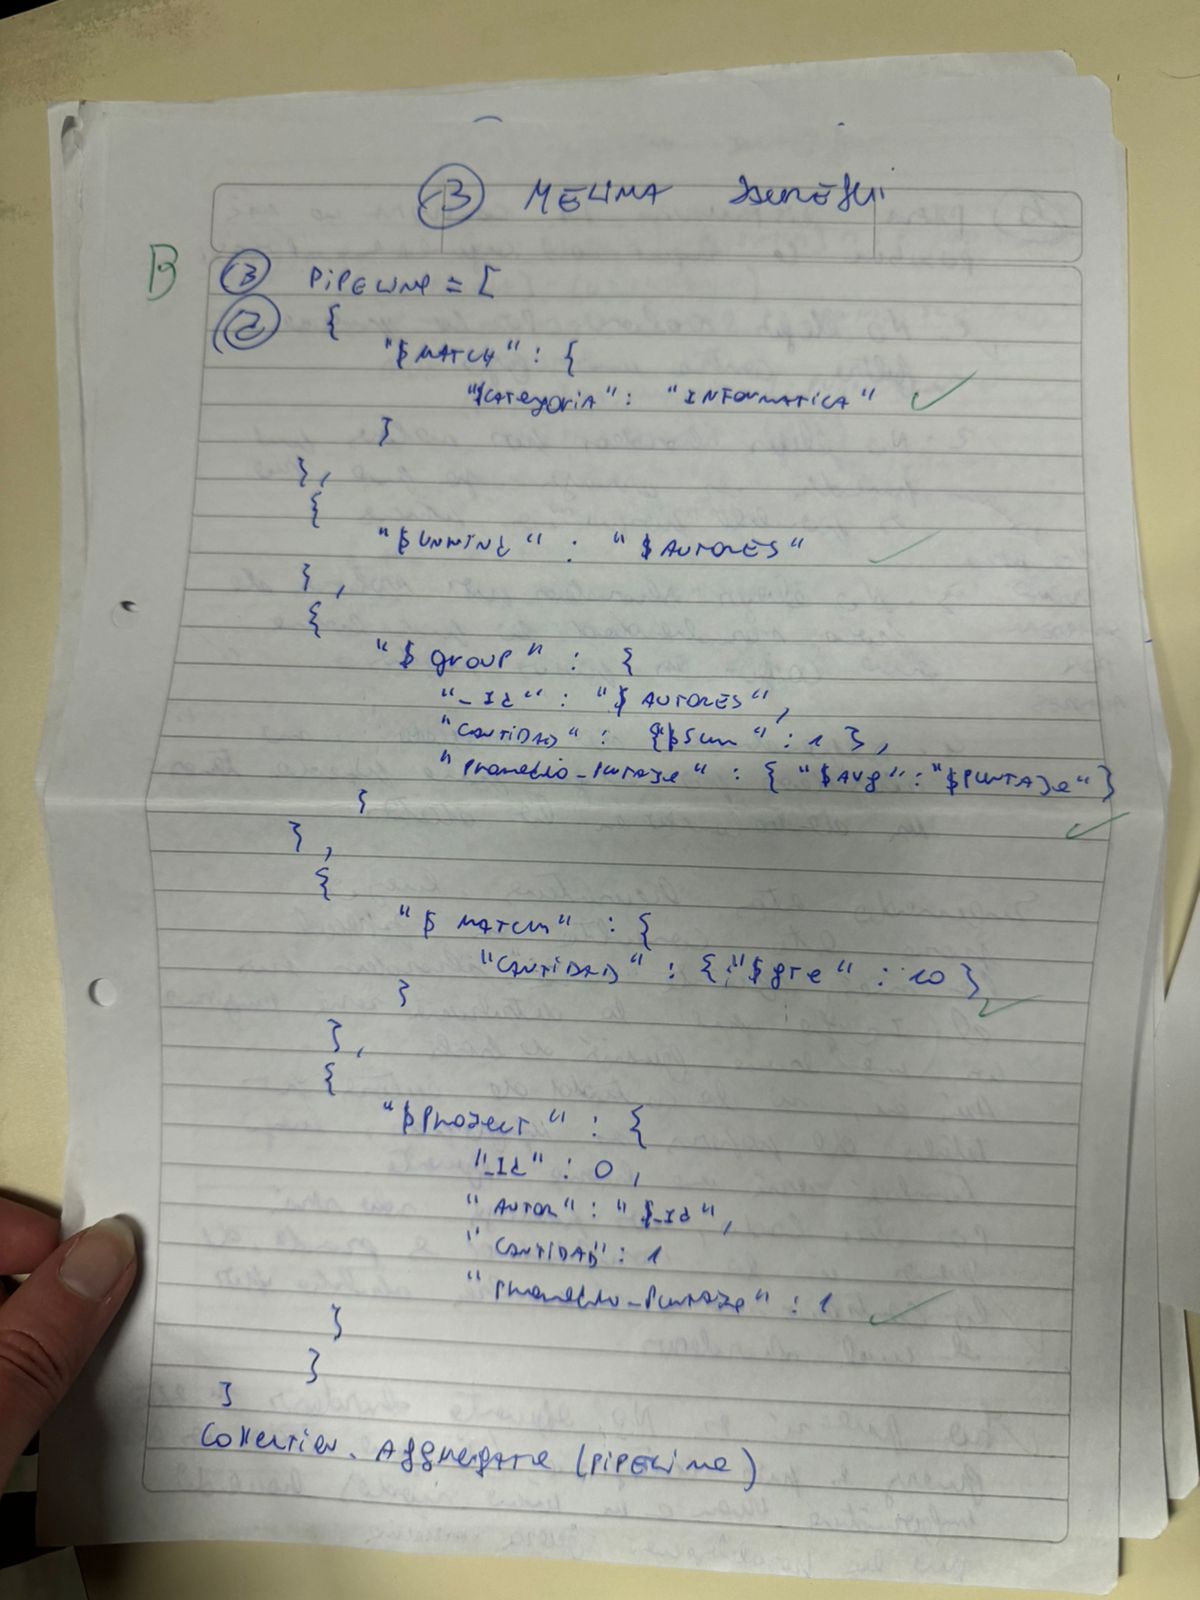 3 MELINA
B
3 PIPELINE = [
2 {
"$MATCH" : {
"$CATEGORIA" : "INFORMATICA"
}
},
{
"$UNWIND" : "$AUTORES"
},
{
"$group" : {
"_Id" : "$AUTORES",
"CANTIDAD" : {"$Sum" : 1 },
"Promedio_Puntaje" : { "$Avg" : "$PUNTAJe" }
}
},
{
"$MATCH" : {
"CANTIDAD" : { "$gte" : 10 }
}
},
{
"$PROJECT" : {
"_Id" : 0,
"AUTOR" : "$_Id",
"CANTIDAD" : 1
"Promedio_Puntaje" : 1
}
}
]
Collection. Aggregate (PIPELINE)